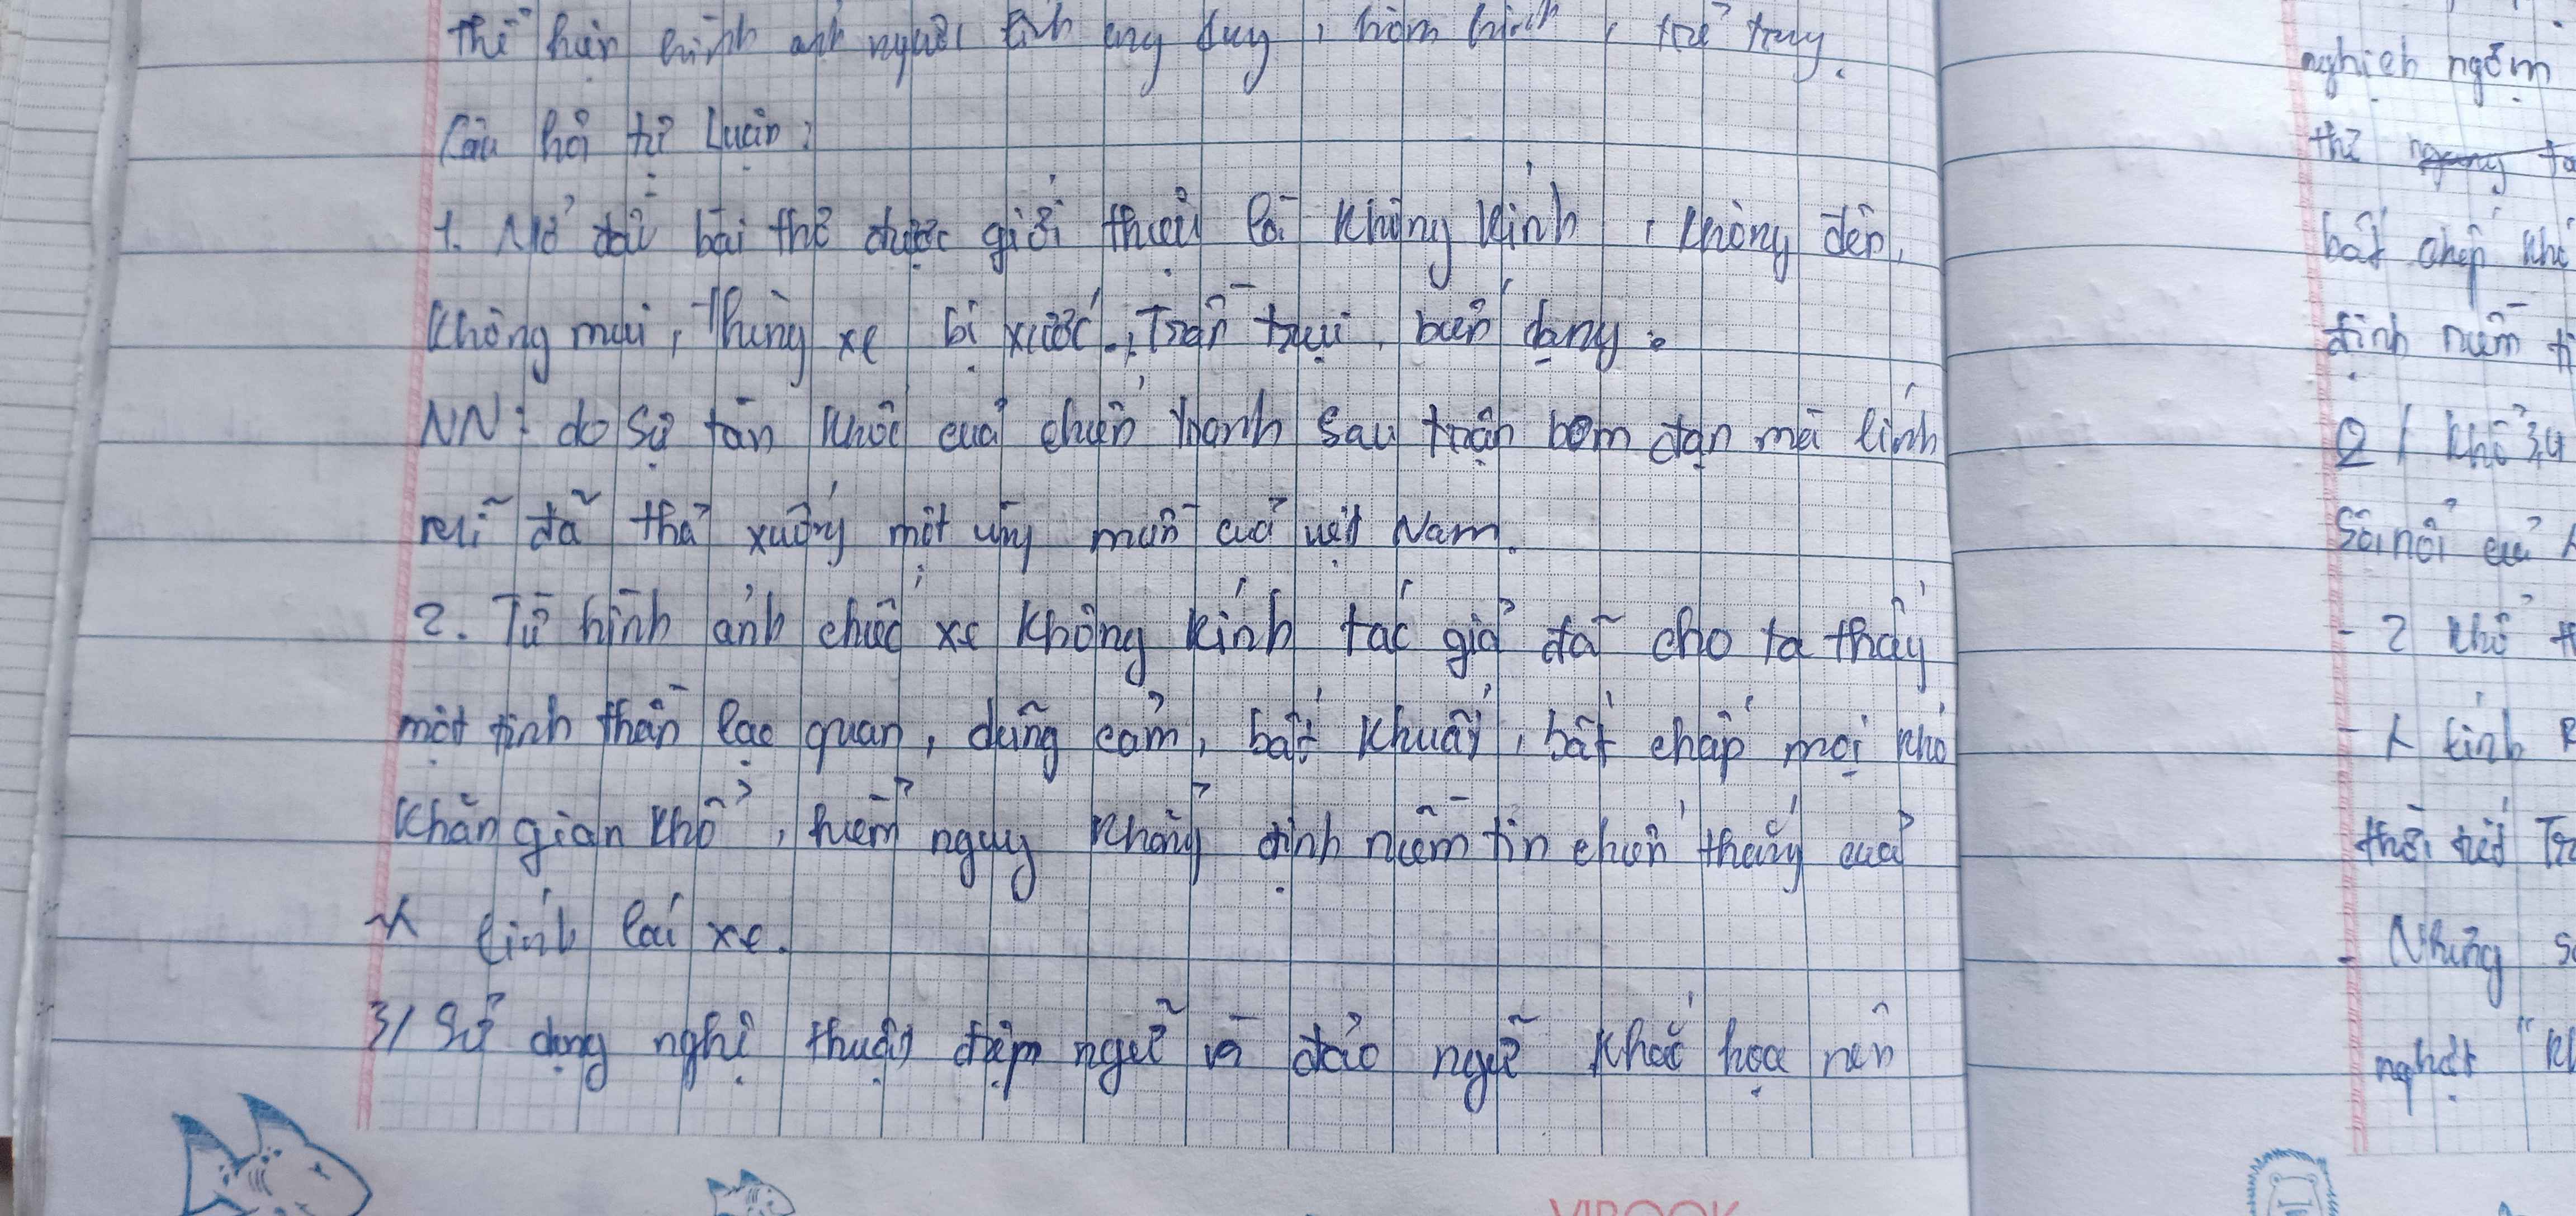 thể hiện hình ảnh người lính ung dung, hóm hỉnh, trẻ trung.
Câu hỏi tự luận:
1. Mở đầu bài thơ được giới thiệu là không kính, không đèn,
không mui, Thùng xe bị xước, Trần trụi, biến dạng.
NN: do sự tàn khốc của chiến tranh sau trận bom đạn mà lính
mĩ đã thả xuống một vùng miền của việt Nam.
2. Từ hình ảnh chiếc xe không kính tác giả đã cho ta thấy
một tinh thần lạc quan, dũng cảm, bất khuất, bất chấp mọi khó
khăn gian khổ, hiểm nguy khẳng định niềm tin chiến thắng của
lính lái xe.
3/ Sử dụng nghệ thuật điệp ngữ và đảo ngữ khắc họa nên
VIBOOK
nghịch ngợm
thể
bất chấp khó
định niềm
2/ khổ 3,4
Sôi nổi của
- 2 khổ
- lính
thời tiết
- Những
nghật